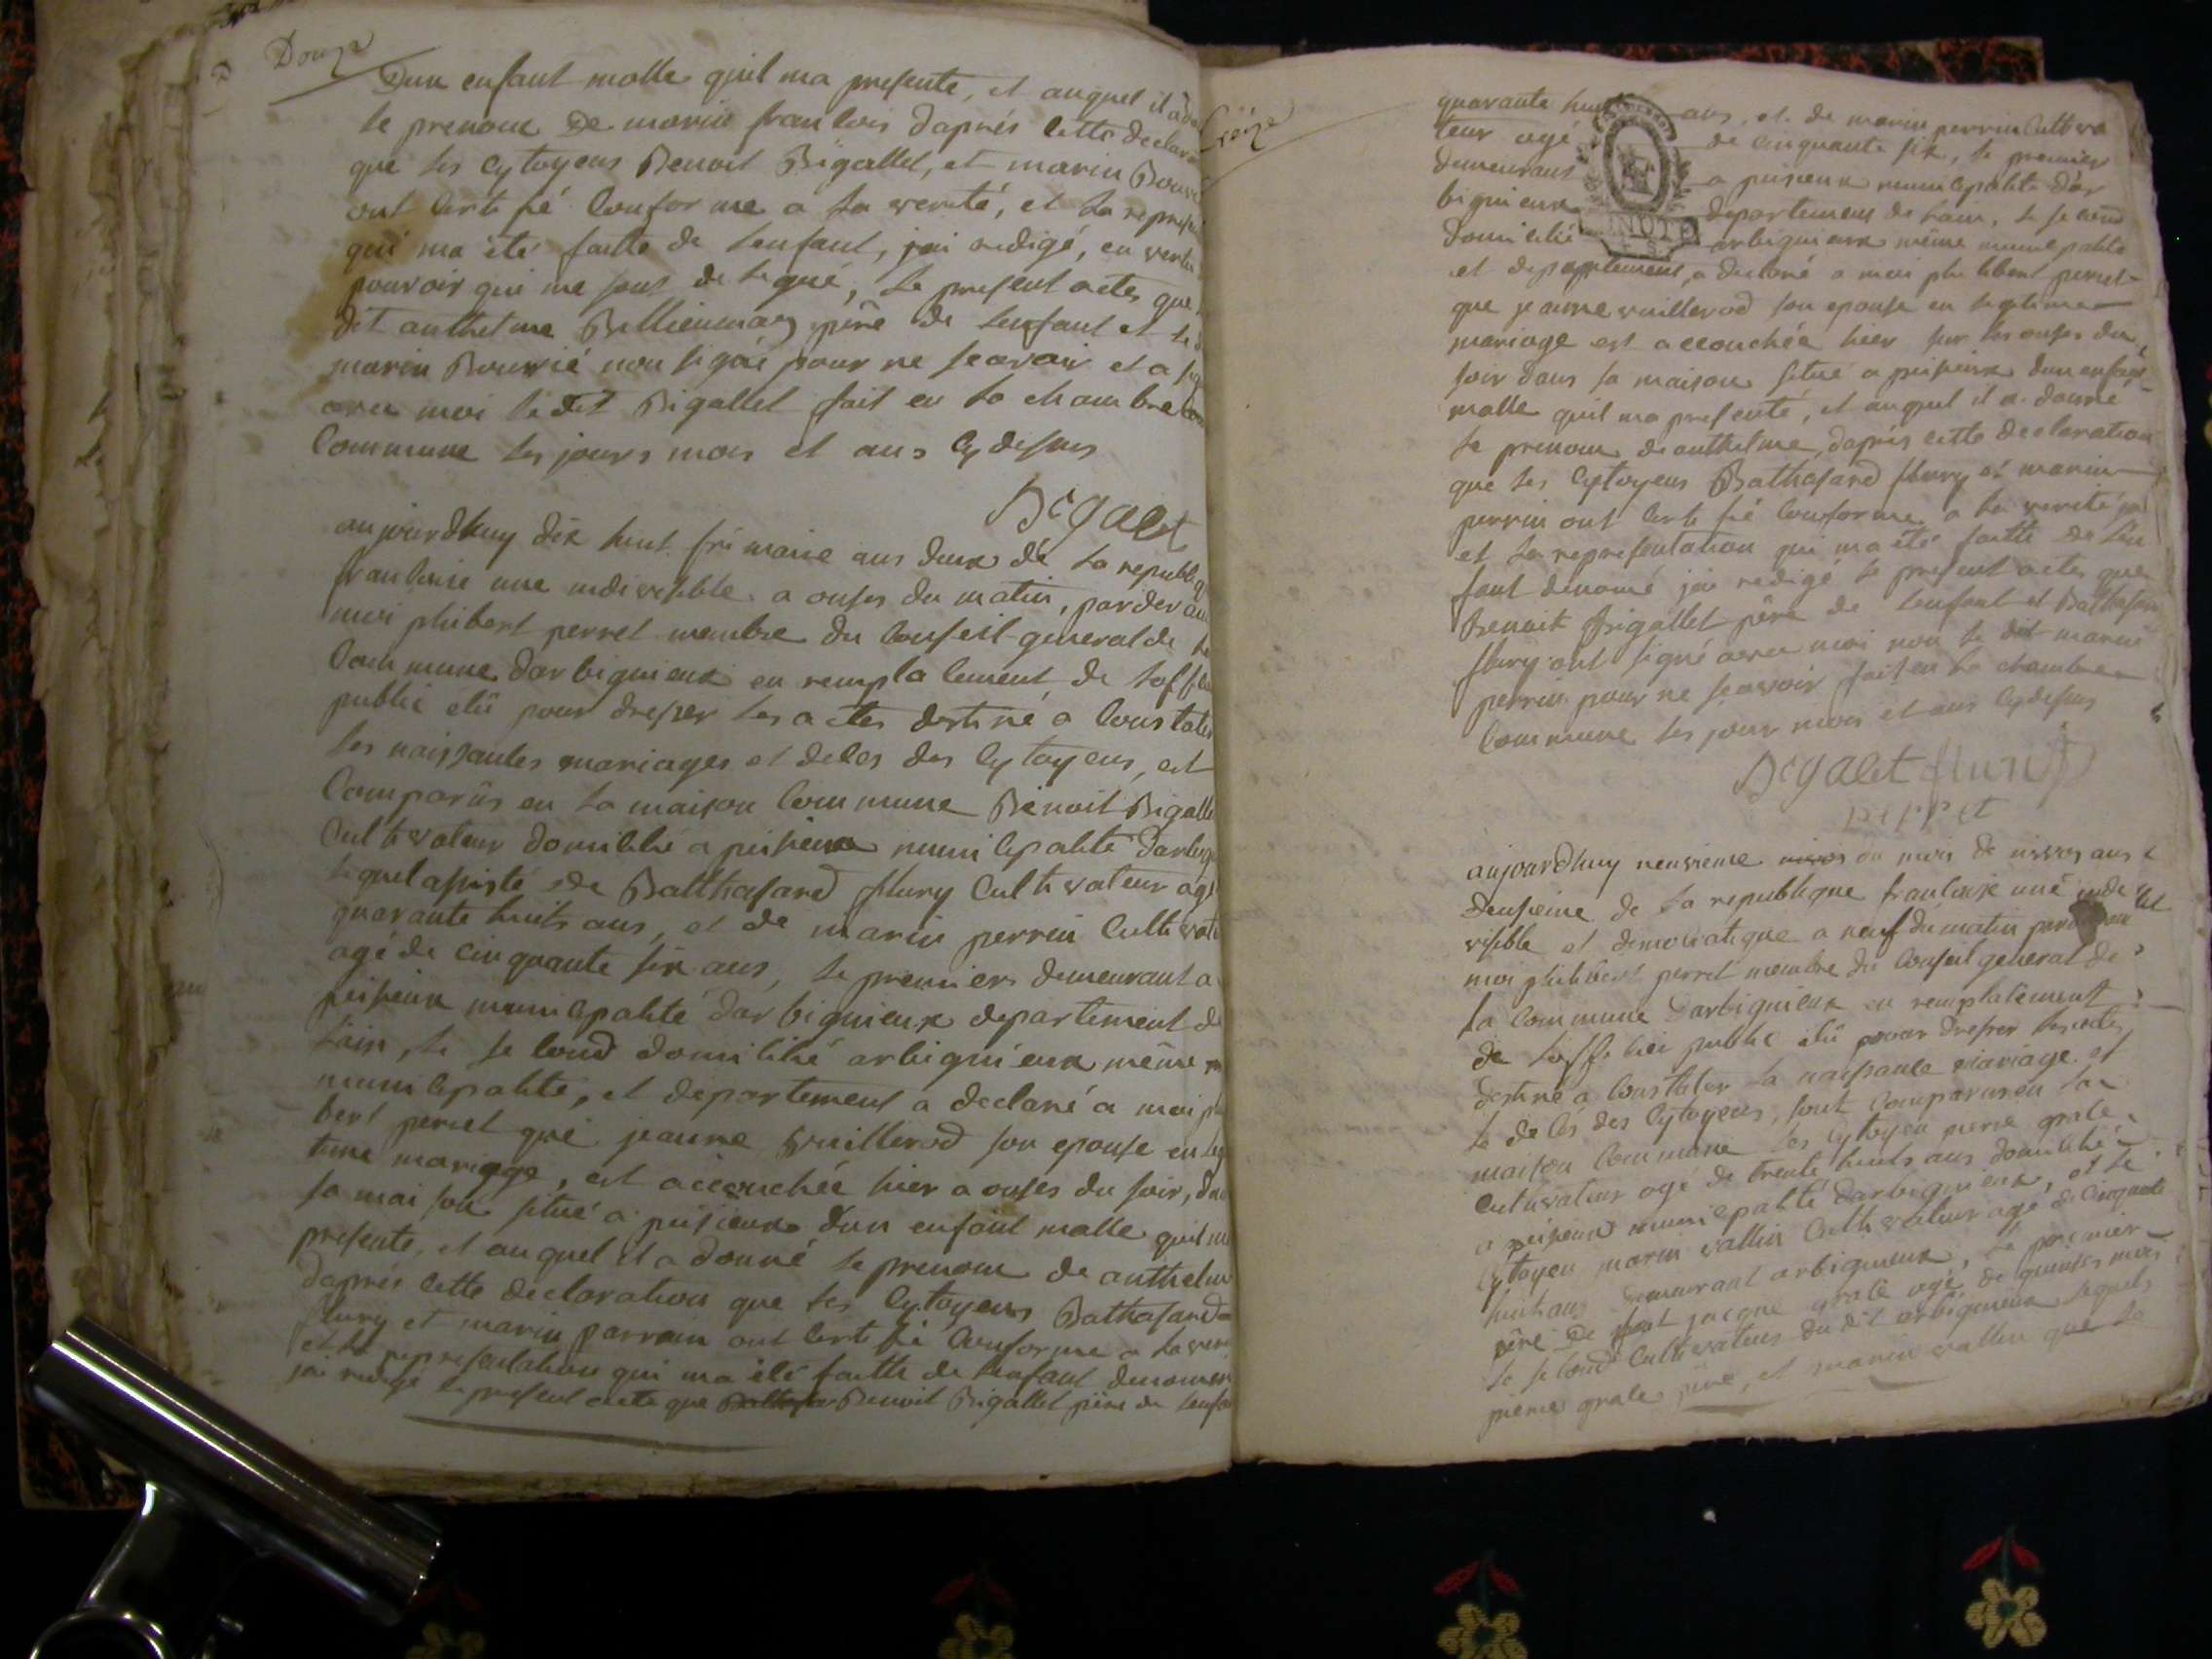 Douze
Dun enfant malle quil ma presente, et auquel il a
le prenom De marie francois daprès cette declara
que les cytoyens Benoit Bigallet, et marin Bouv
ont certifié conforme a la verité, et la represe
qui ma été faitte de lenfant, jai redigé, en vertu
pouvoir qui me sont delegué, le present actes que
dit anthelme Billiemaz père de lenfant et le
marin Bouvié non signé pour ne scavoir et a
avec moi ledit Bigallet fait en la chambre
commune les jours mois et ans cy dessus
Bigalet
aujourdhuy dix huit frimaire ans deux de la republi
francaise une indivisible a onses du matin, pardevan
moi phibert perret membre du conseil general de
commune darbignieux en remplacement de loffic
public élû pour dresser les actes destiné a constater
les naissantes mariages et deces des cytoyens, est
comparûs en la maison commune Benoit Bigalle
cultivateur domicilié a peisieux municipalité darbig
lequel assisté de Balthasard flury cultivateur agé
quarante huits ans, et de marin perrin cultivate
agé de cinquante six ans, le premier demeurant a
peisieux municipalité darbignieux departement de
lain, le second domicilié arbignieux même
municipalité, et departement a declaré a moi phi
bert perret que jeanne vuillerod son epouse en leg
time mariage, est accouchée hier a onses du soir, da
sa maison situé a peisieux dun enfant malle quil m
presente, et auquel il a donné le prenom de anthelm
daprès cette declaration que les cytoyens Bathasard
flury et marin parrain ont certifié conforme a la veri
et la representation qui ma été faitte de lenfant denomé
jai redigé le present acte que Benoit Bigallet père de lenfa
treize
quarante huit ans, et de marin perrin cultiva
teur agé de cinquante six, le premier
demeurant a peisieux municipalité dar
bignieux departement de lain, le second
domicilié arbignieux même municipalité
et departement, a declaré a moi philibert perret
que jeanne vuillerod son epouse en legitime
mariage est accouchée hier sur les onses du
soir dans sa maison situé a peisieux dun enfant
malle quil ma presenté, et auquel il a donné
le prenom de anthelme, daprès cette declaration
que les cytoyens Bathasard flury et marin
perrin ont certifié conforme a la verité
et la representation qui ma été faitte de len
fant denomé jai redigé le present actes que
Benoit Brigallet père de lenfant et Balthasard
flury ont signé avec moi non le dit marin
perrin pour ne scavoir fait en la chambre
commune les jour mois et ans cy dessus
Bigalet flury
perret
aujourdhuy neuvieme nivos du mois de nivos ans
deusieme de la republique francaise une indi
visible et democratique a neuf du matin
moi philibert perret membre du conseil general de
la commune darbignieux en remplacement
de lofficier public élû pour dresser les actes
destiné a constater la naissance mariage et
le decés des cytoyens, sont comparus en la
maison commune les cytoyen pierre grale
cultivateur age de trente huits ans domicilié
a peisieux municipalité darbignieux, et le
cytoyen marin vallin cultivateur agé de cinquante
huit ans demeurant arbignieux, le premier
père de jacque grale agé de quinses mois
le second cultivateur du dit arbignieux lequels
pierre grale père, et marin vallin que le